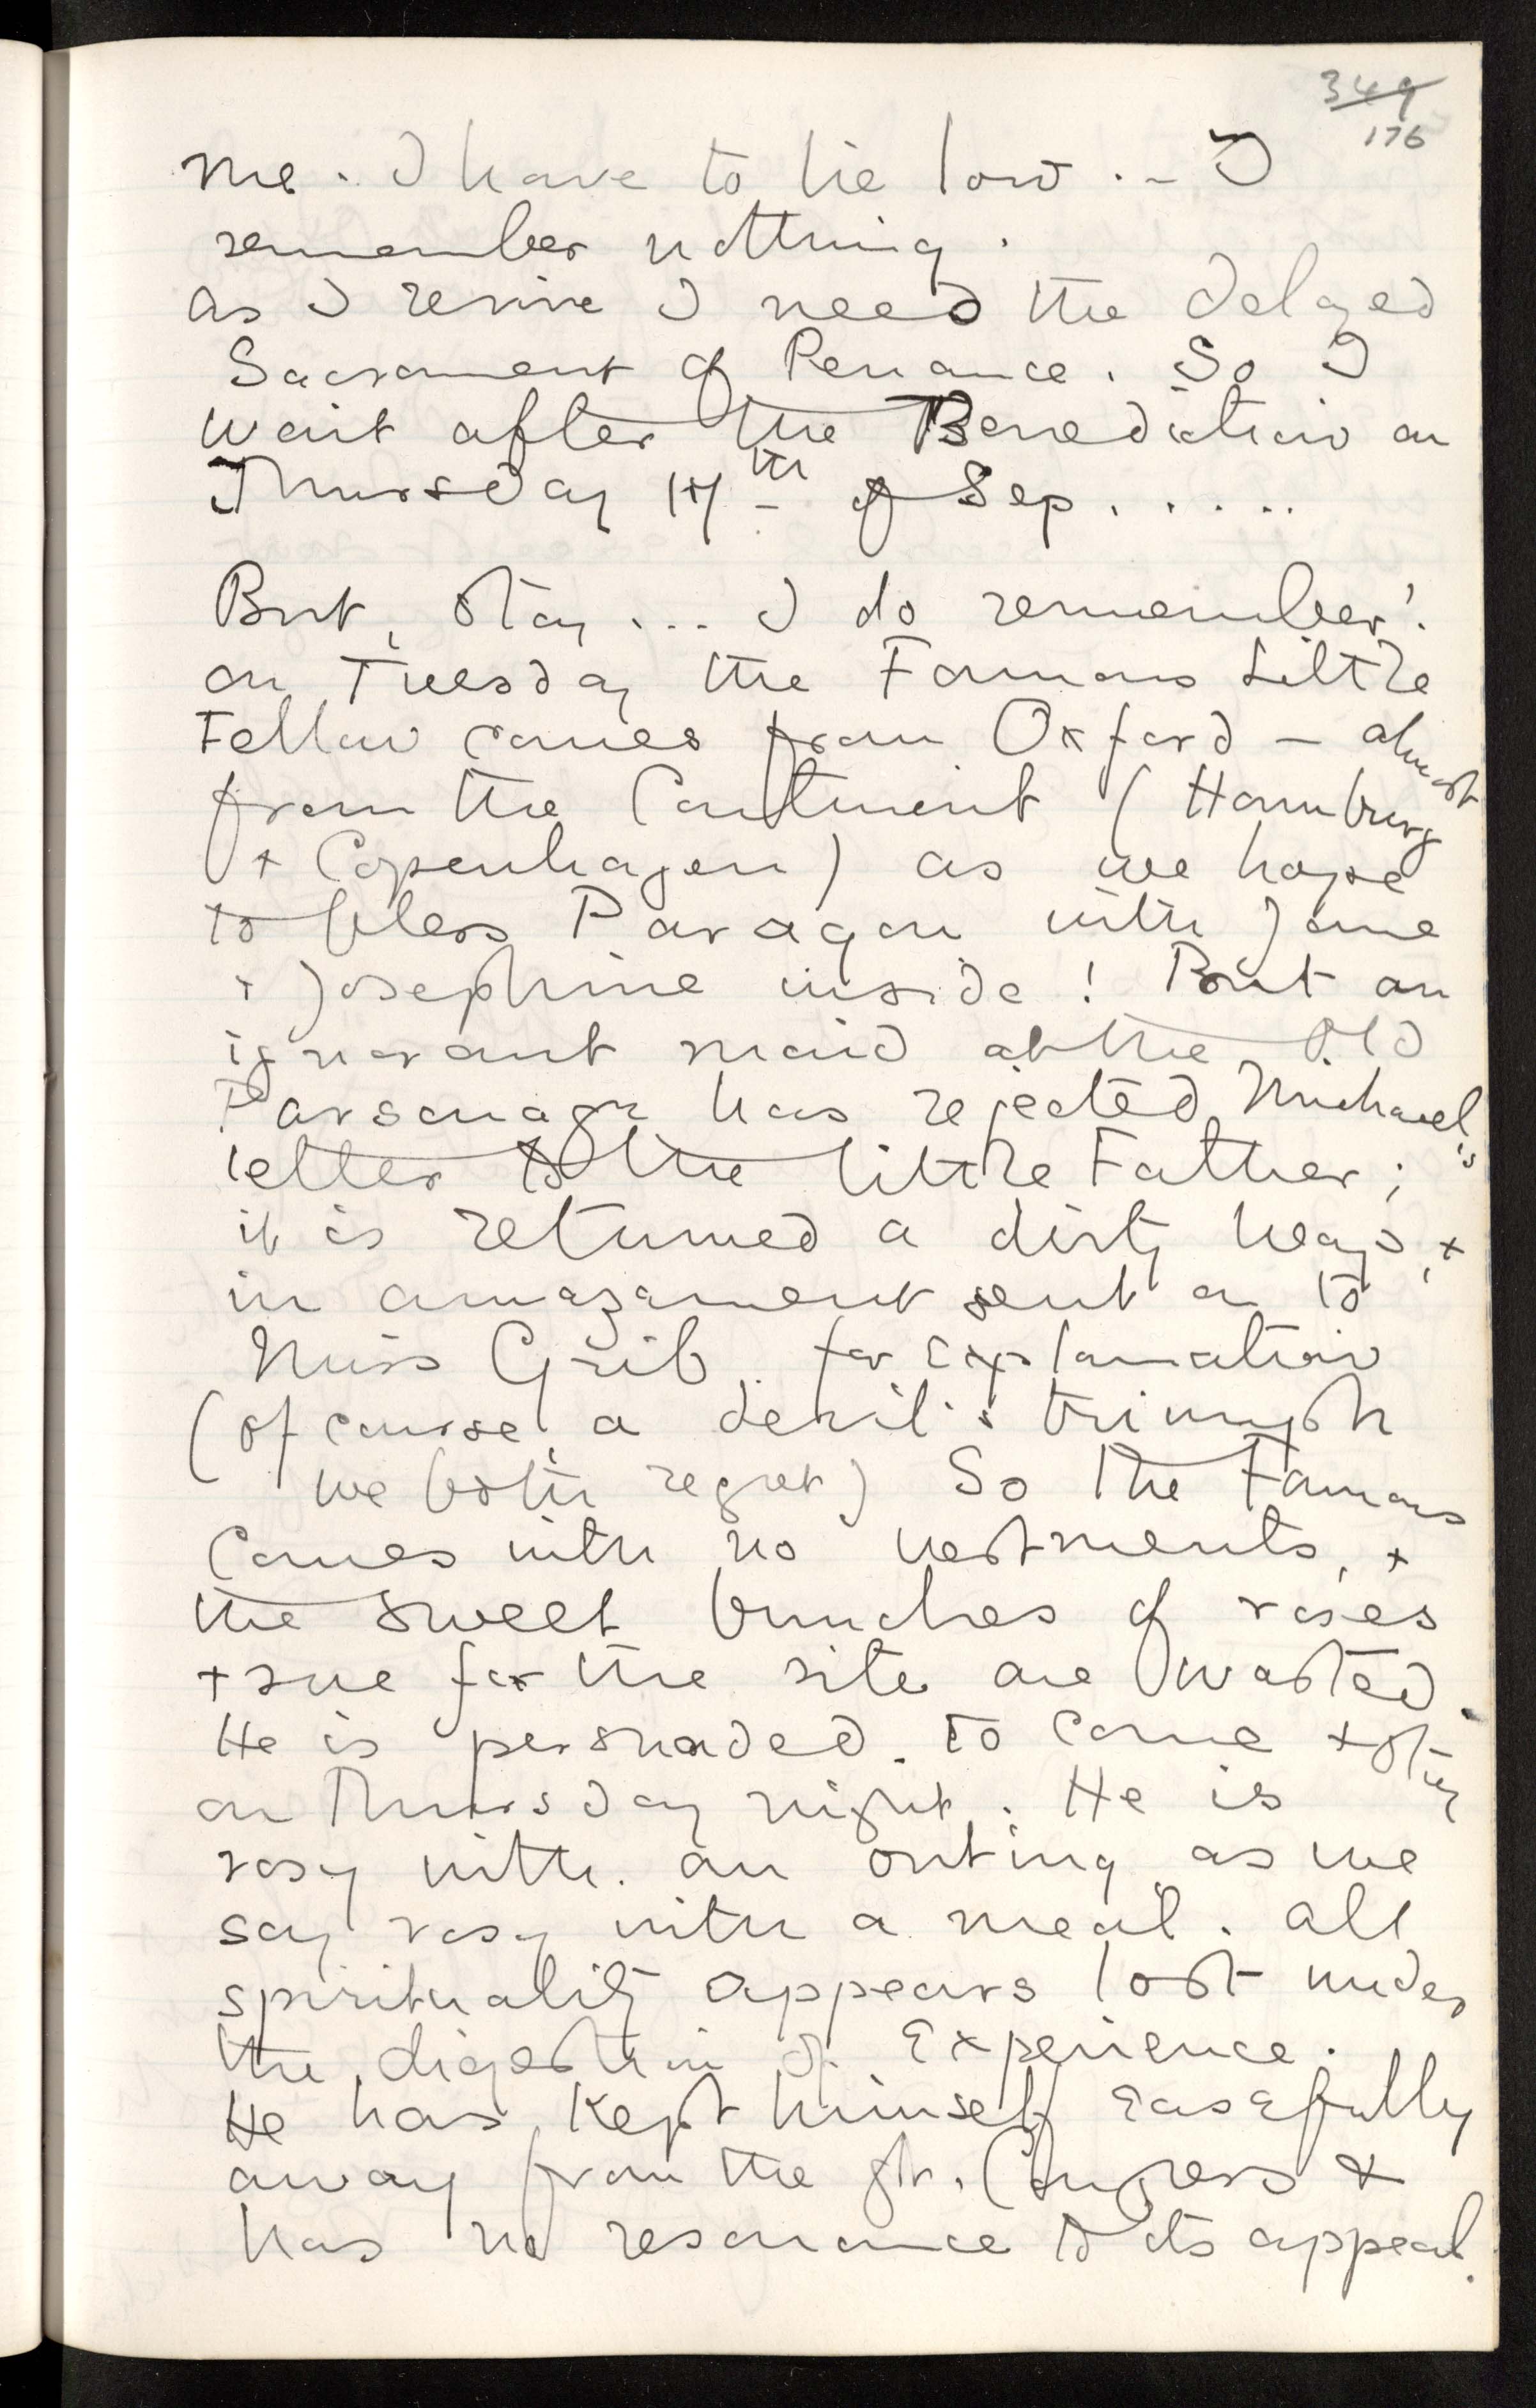 349
176
me. I have to lie low. - I
remember nothing.
As I revive I need the delayed
Sacrament of Penance. So I
wait after the Benediction on
Thursday 17th of Sep. . . . .
But, stay ... I do remember!
on Tuesday the Famous Little
Fellow comes from Oxford - almost
from the Continent (Hamburg
+ Copenhagen) as we hope
to bless Paragon with Jane
+ Josephine inside! But an
ignorant maid at the Old
Parsonage has rejected Michael's
letter to the little Father;
it is returned a dirty heap, +
in amazement sent on to
Miss Grib. for explanation
(of course, a devil's triumph
we both regret) So the Famous
comes with no vestments, +
the sweet bunches of roses
+ rue for the rite are wasted.
He is persuaded to come + stay
on Thursday night. He is
rosy with an outing as we
say rosy with a meal. All
spirituality appears lost under
the digestion of Experience.
He has kept himself easefully
away from the Congress +
has no resonance to its appeal.